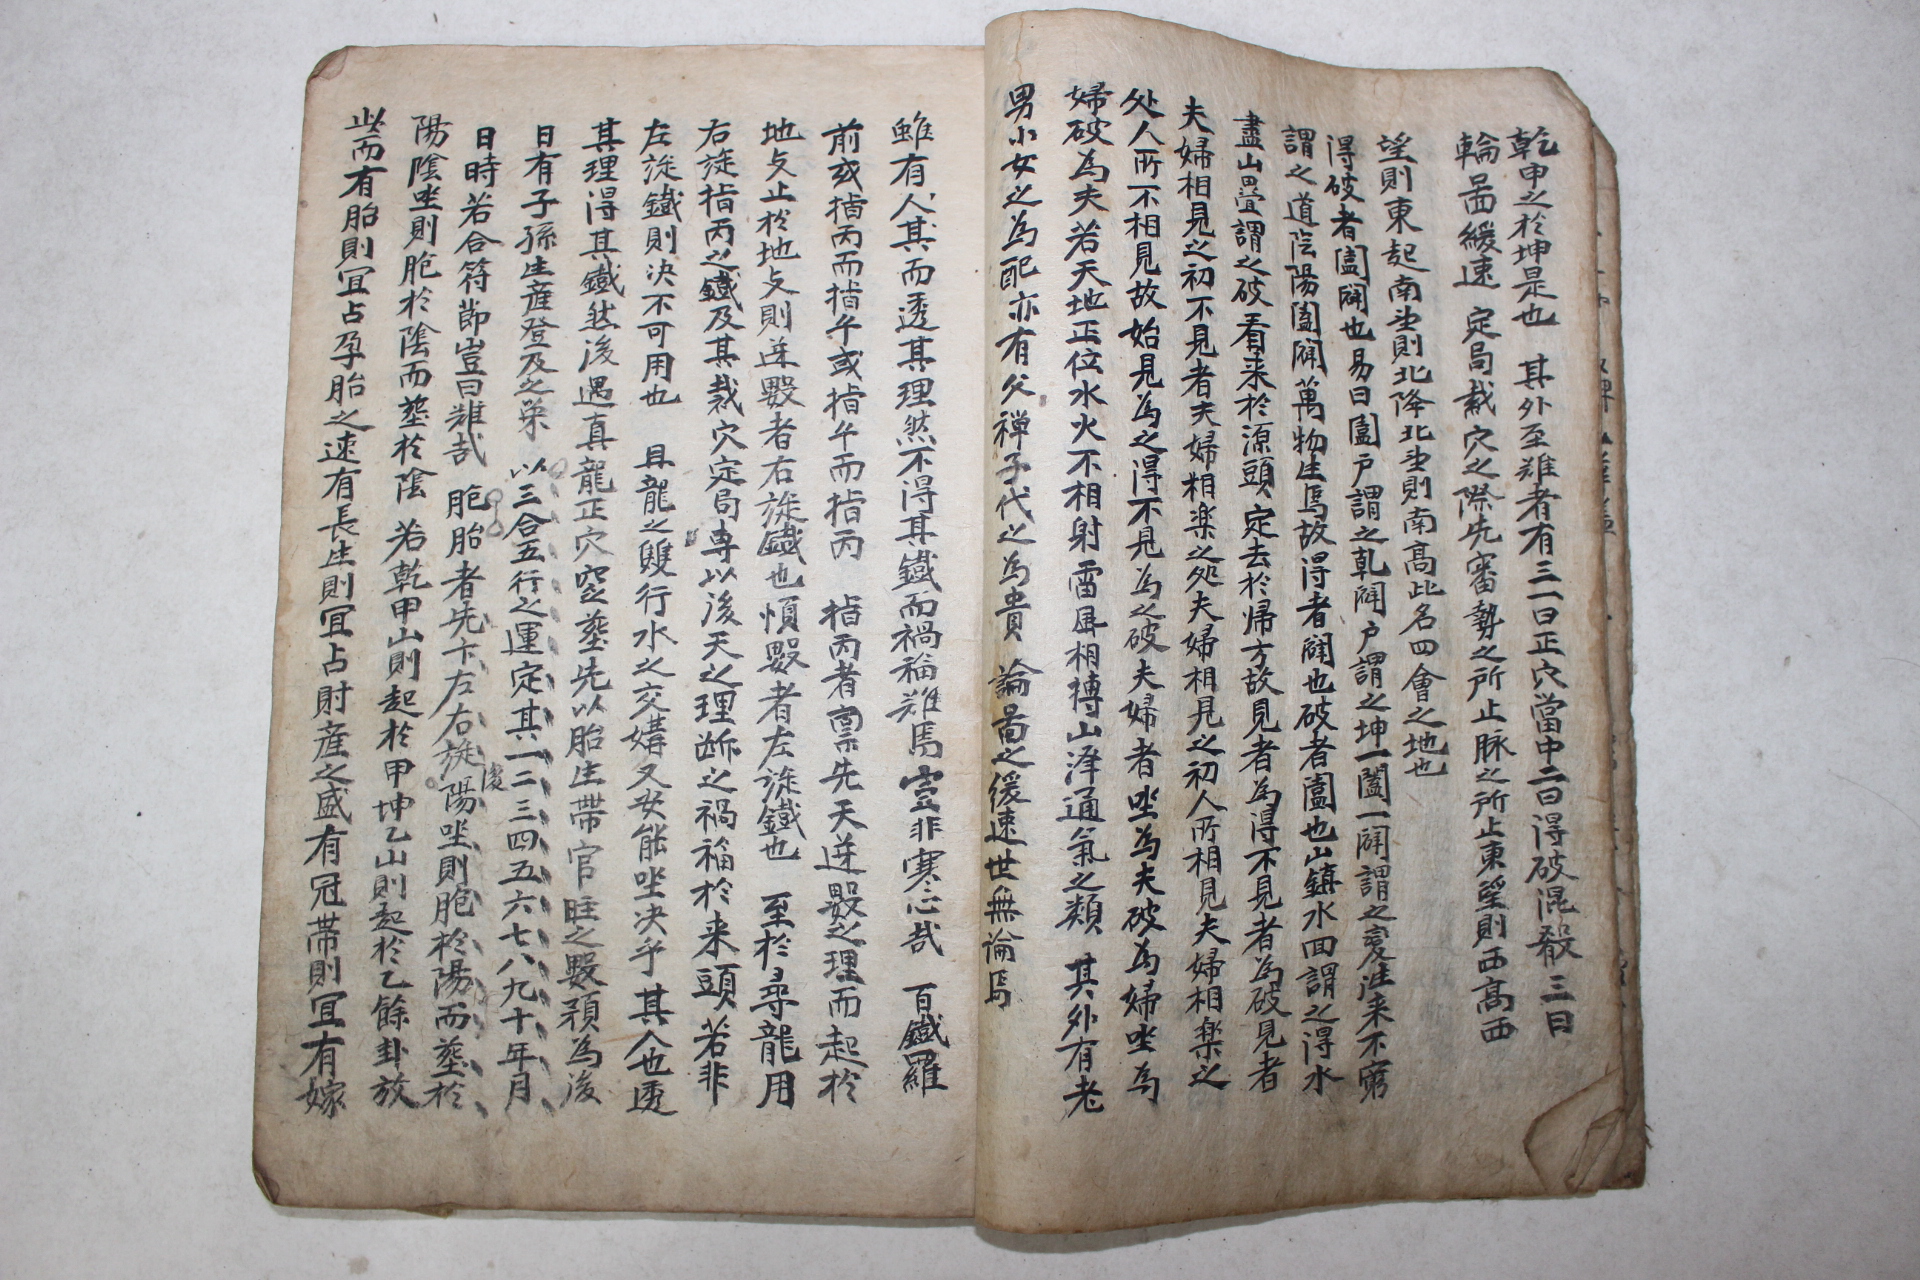 乾申之於坤是也 其外至難者有三一曰正穴當中二曰得破混殺三曰
輪啚緩速 定局裁穴之際先審勢之所止脉之所止東望則西高西
望則東起南坐則北降北坐則南高此名四會之地也
得破者闔闢也易曰闔户謂之乾闢户謂之坤一闔一闢謂之変往来不窮
謂之道陰陽闔闢萬物生焉故得者闢也破者闔也山鎮水回謂之得水
盡山疊謂之破看来於源頭定去於歸方故見者為得不見者為破見者
夫婦相見之初不見者夫婦相楽之処夫婦相見之初人所相見夫婦相楽之
处人所不相見故始見為之得不見為之破夫婦者坐為夫破為婦坐為
婦破為夫若天地正位水火不相射雷風相搏山泽通氣之類 其外有老
男小女之為配亦有父禅子代之為貴 論啚之緩速世無論焉
雖有人其而透其理然不得其鐵而禍福難焉豈非寒心哉 百鐵羅
前或指丙而指午或指午而指丙 指丙者禀先天逆數之理而起於
地攴止於地攴則逆數者右旋鐵也順數者左旋鐵也 至於尋龍用
右旋指丙之鐵及其裁穴定局専以後天之理断之禍福於来頭若非
左旋鐵則决不可用也 且龍之雙行水之交媾又安能坐决乎其人也透
其理得其鐵然後遇真龍正穴窆葬先以胎生帯官旺之數預為後
日有子孫生産登及之栄 以三合五行之運定其一二三四五六七八九十年月
日時若合符節豈曰難哉 胞胎者先卞左右旋後陽坐則胞於陽而葬於
陽陰坐則胞於陰而葬於陰 若乾甲山則起於甲坤乙山則起於乙餘卦放
此而有胎則冝占孕胎之速有長生則冝占財産之盛有冠帯則冝有嫁